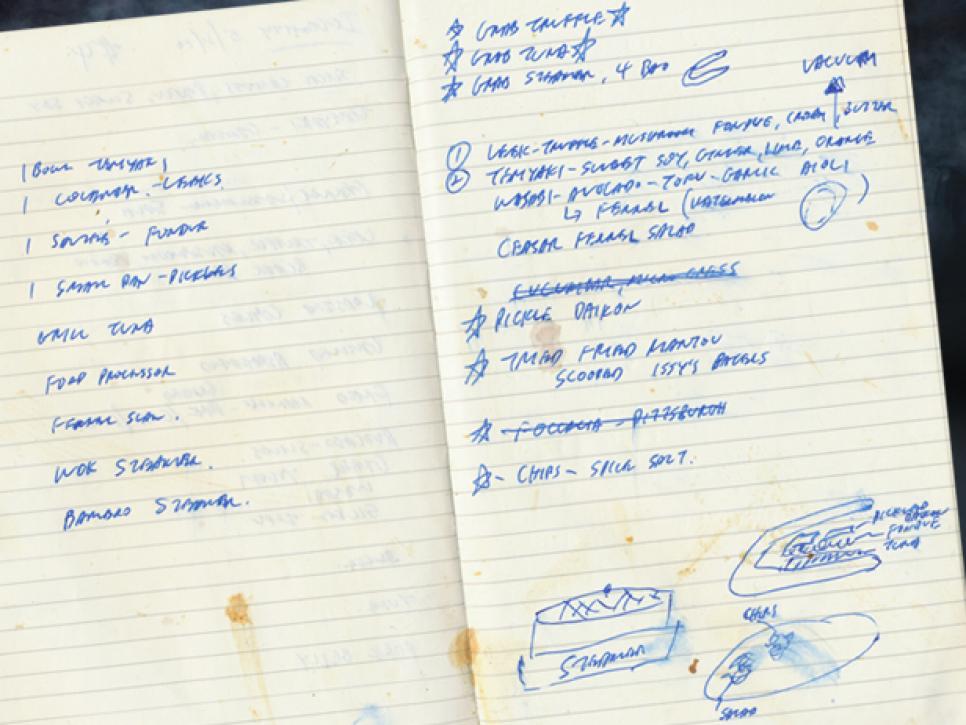 1 Bowl TERIYAKI
1 COLANDER - LEEKS
1 SAUTEE - FONDUE
1 SMALL PAN - PICKLES
GRILL TUNA
FOOD PROCESSOR
FENNEL SLAW.
WOK STEAMER.
BAMBOO STEAMER.
GRAB TRUFFLE
GRAB TUNA
GRAB STEAMER, 4 BAO
VACUUM
1 LEEK-TRUFFLE-MUSHROOM FONDUE, CREAM, BUTTER
2 TERIYAKI-SWEET SOY, GINGER, LIME, ORANGE
WASABI-AVOCADO-TOFU-GARLIC AIOLI
↳ FENNEL (WATERMELON )
CEASAR FENNEL SALAD
CUCUMBER, MICRO CRESS
PICKLE DAIKON
FRIED MANTOU
SCOOPED ISSY'S BAGELS
FOCCACIA - PITTSBURGH
- CHIPS - SPICE SALT.
PICKLED
FONDUE
TUNA
CHIPS
STEAMER
SALAD